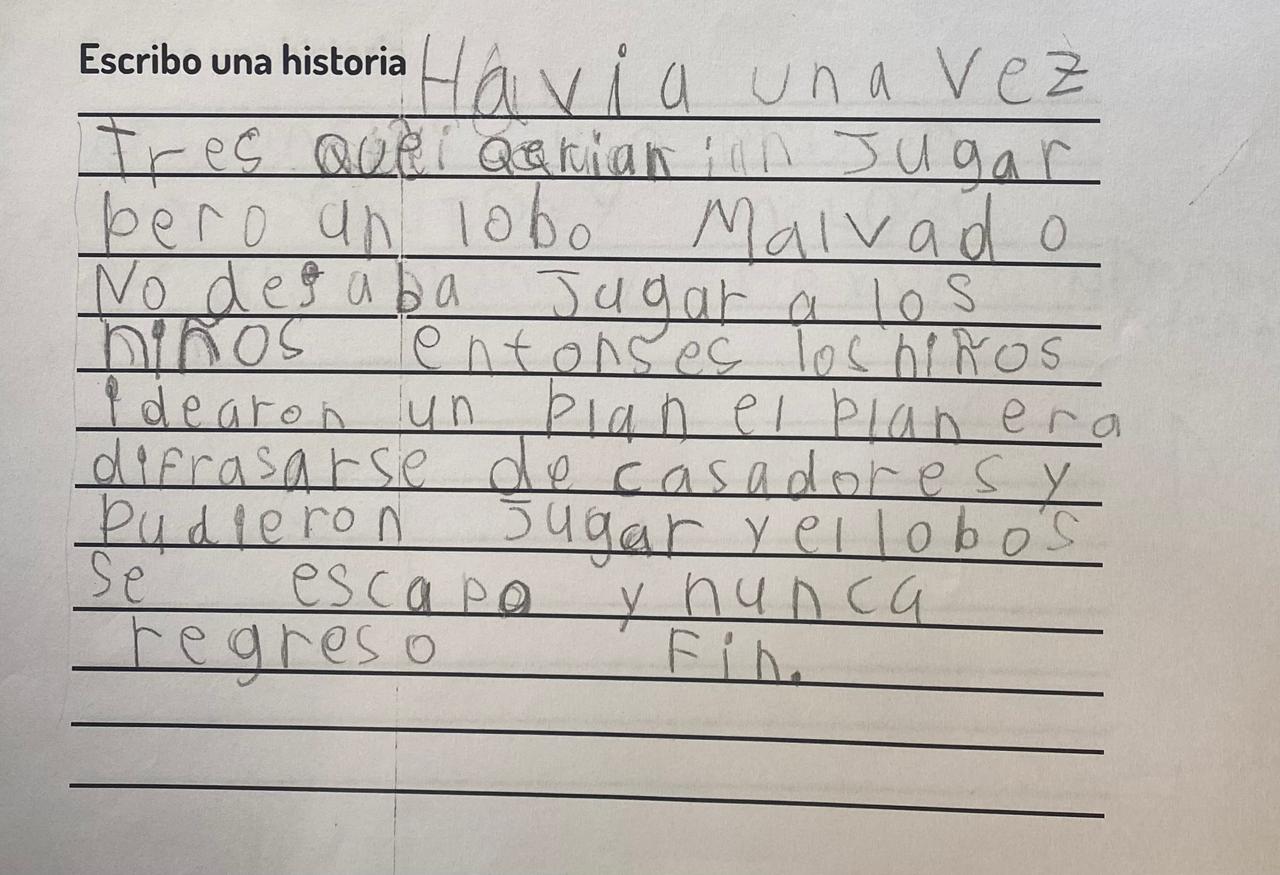 Escribo una historia Havia una vez
tres que qerian jugar
pero un lobo Malvado
No desaba jugar a los
niños entonses los niños
idearon un plan el plan era
difrasarse de casadores y
pudieron jugar y el lobos
se escapo y nunca
regreso Fin.